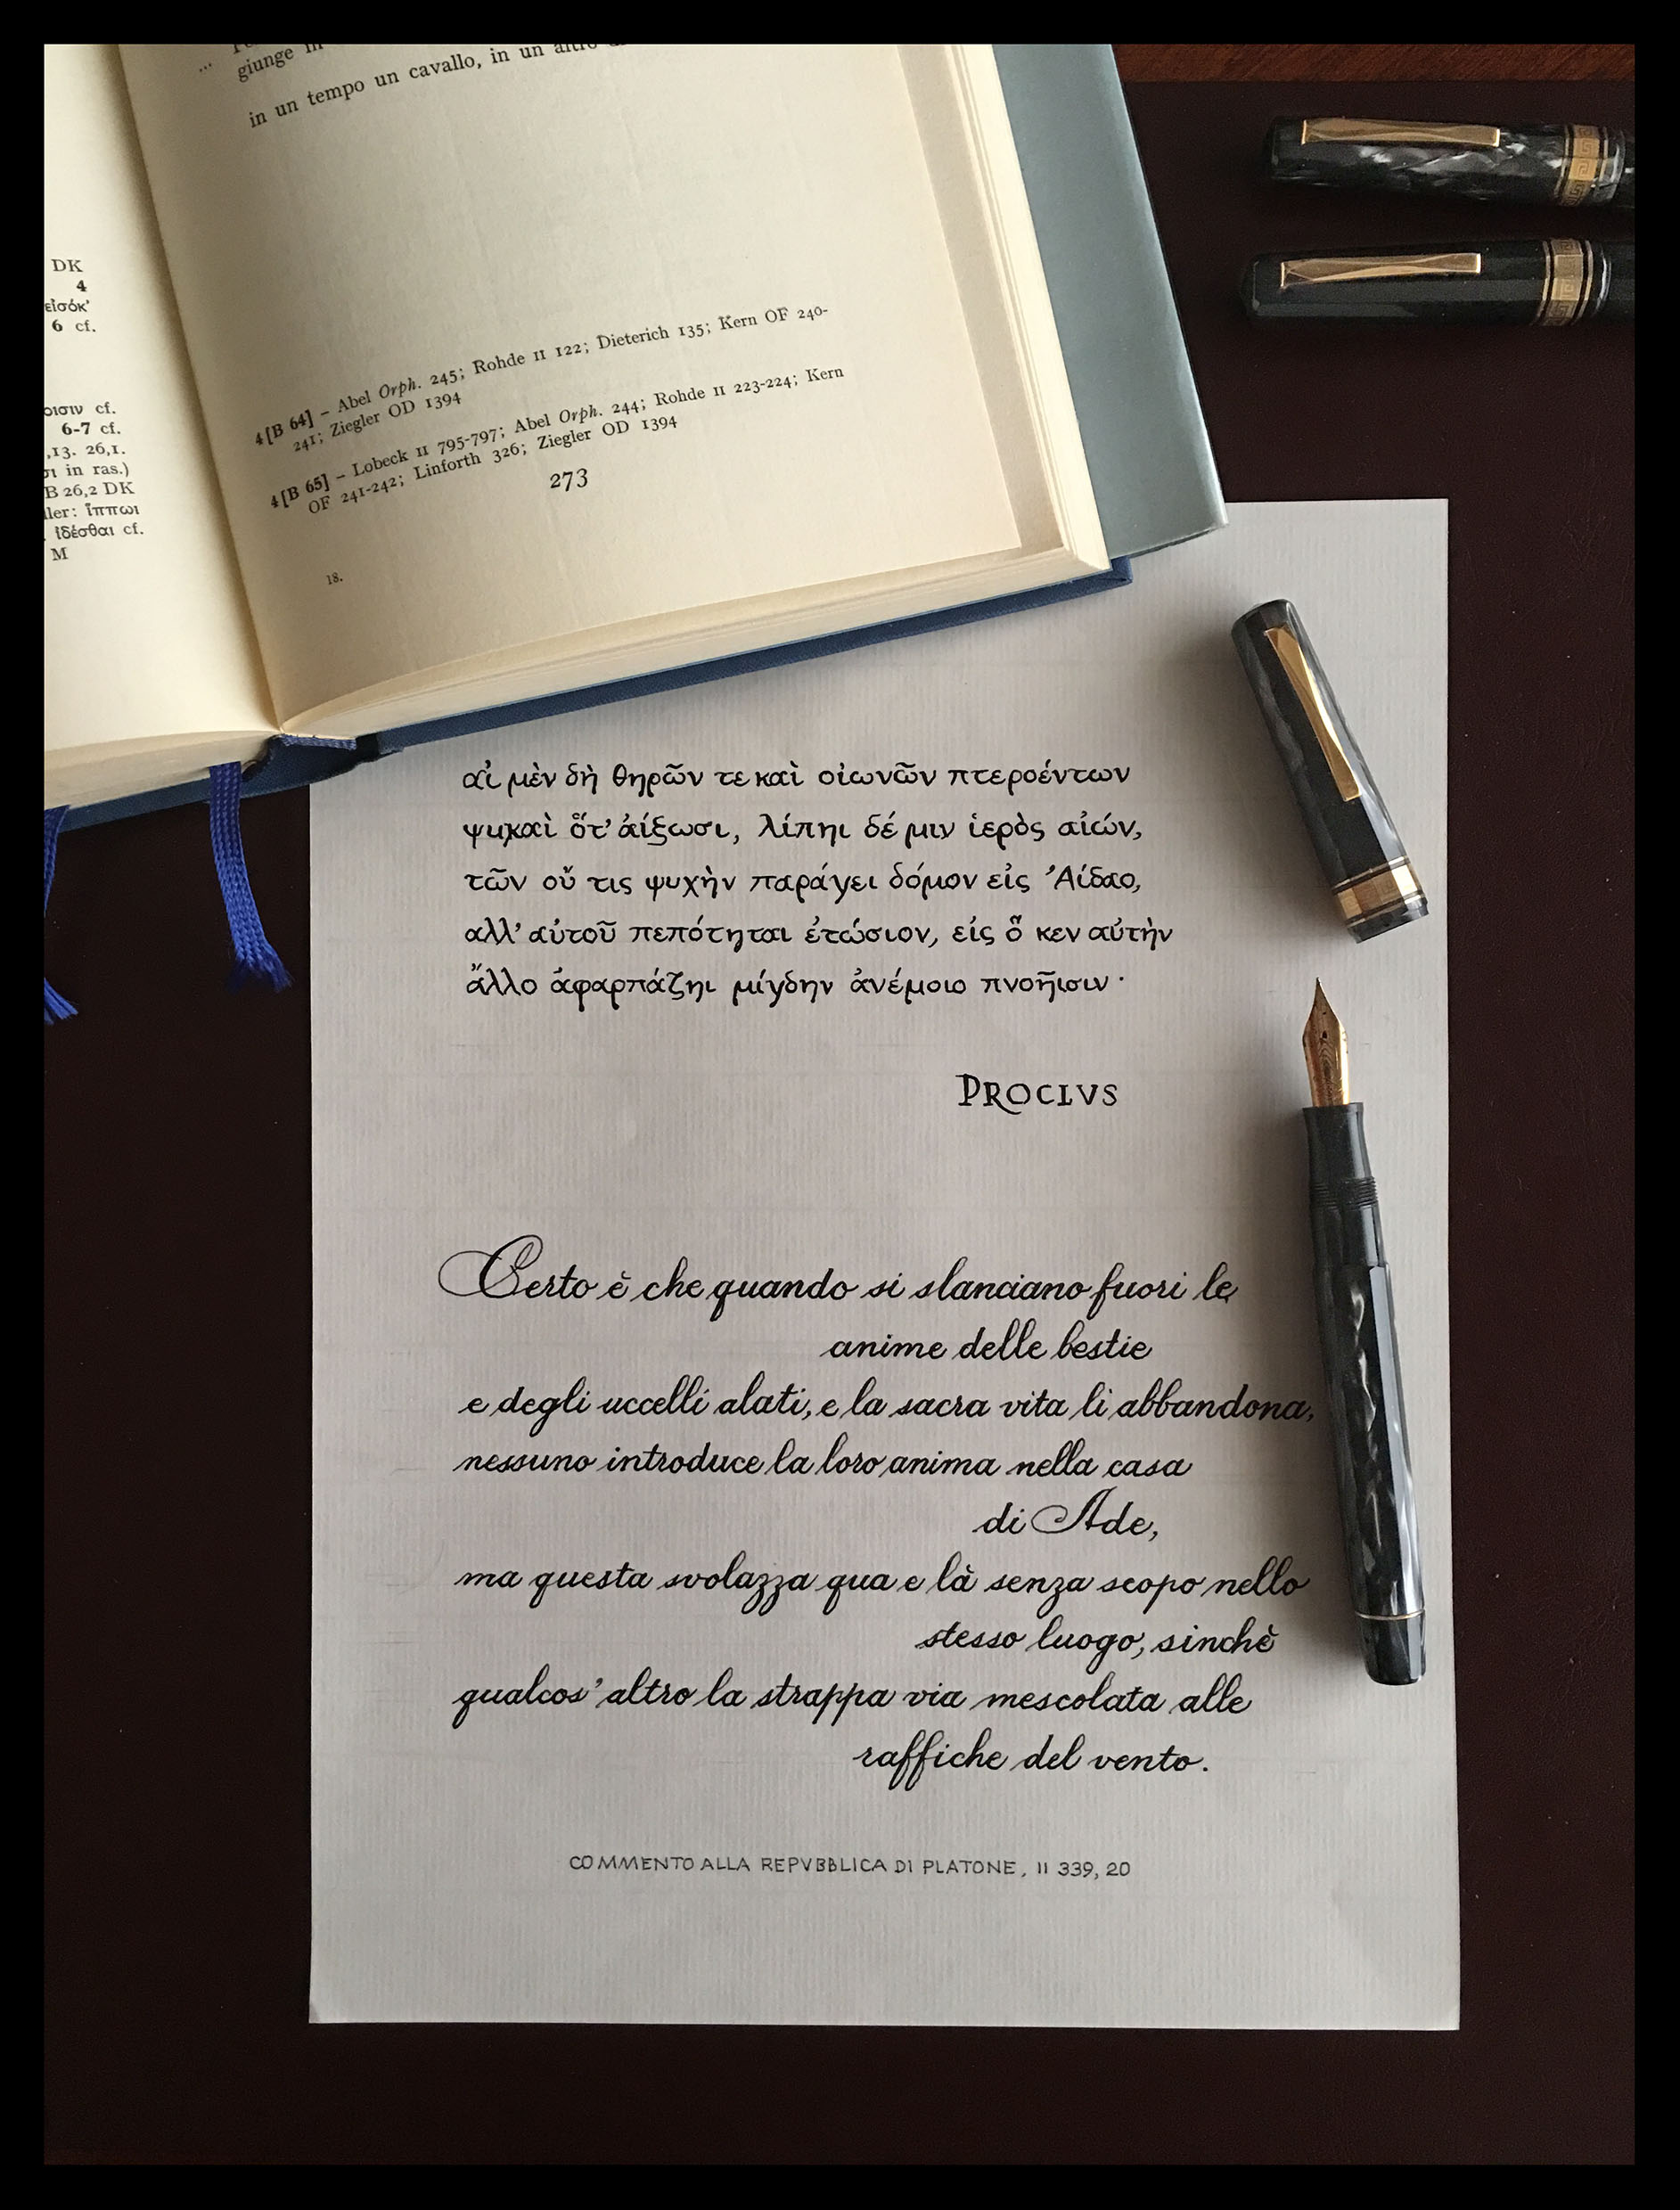 giunge in
in un tempo un cavallo, in un altro
DK
4
εἰσόκ'
6 cf.
οισιν cf.
6-7 cf.
,13. 26,1.
σι in ras.)
B 26,2 DK
ler: ἵππωι
. ἰδέσθαι cf.
M
4[B 64] – Abel Orph. 245; Rohde II 122; Dieterich 135; Kern OF 240-
241; Ziegler OD 1394
4[B 65] – Lobeck II 795-797; Abel Orph. 244; Rohde II 223-224; Kern
OF 241-242; Linforth 326; Ziegler OD 1394
273
18.
αἱ μὲν δὴ θηρῶν τε καὶ οἰωνῶν πτεροέντων
ψυχαὶ ὅτ' ἀίξωσι, λίπηι δέ μιν ἱερὸς αἰών,
τῶν οὔ τις ψυχὴν παράγει δόμον εἰς Ἀίδαο,
αλλ' αὐτοῦ πεπότηται ἐτώσιον, εἰς ὅ κεν αὐτὴν
ἄλλο ἀφαρπάζηι μίγδην ἀνέμοιο πνοῆισιν·
PROCLVS
Certo è che quando si slanciano fuori le
anime delle bestie
e degli uccelli alati, e la sacra vita li abbandona,
nessuno introduce la loro anima nella casa
di Ade,
ma questa svolazza qua e là senza scopo nello
stesso luogo, sinchè
qualcos'altro la strappa via mescolata alle
raffiche del vento.
COMMENTO ALLA REPVBBLICA DI PLATONE, II 339, 20